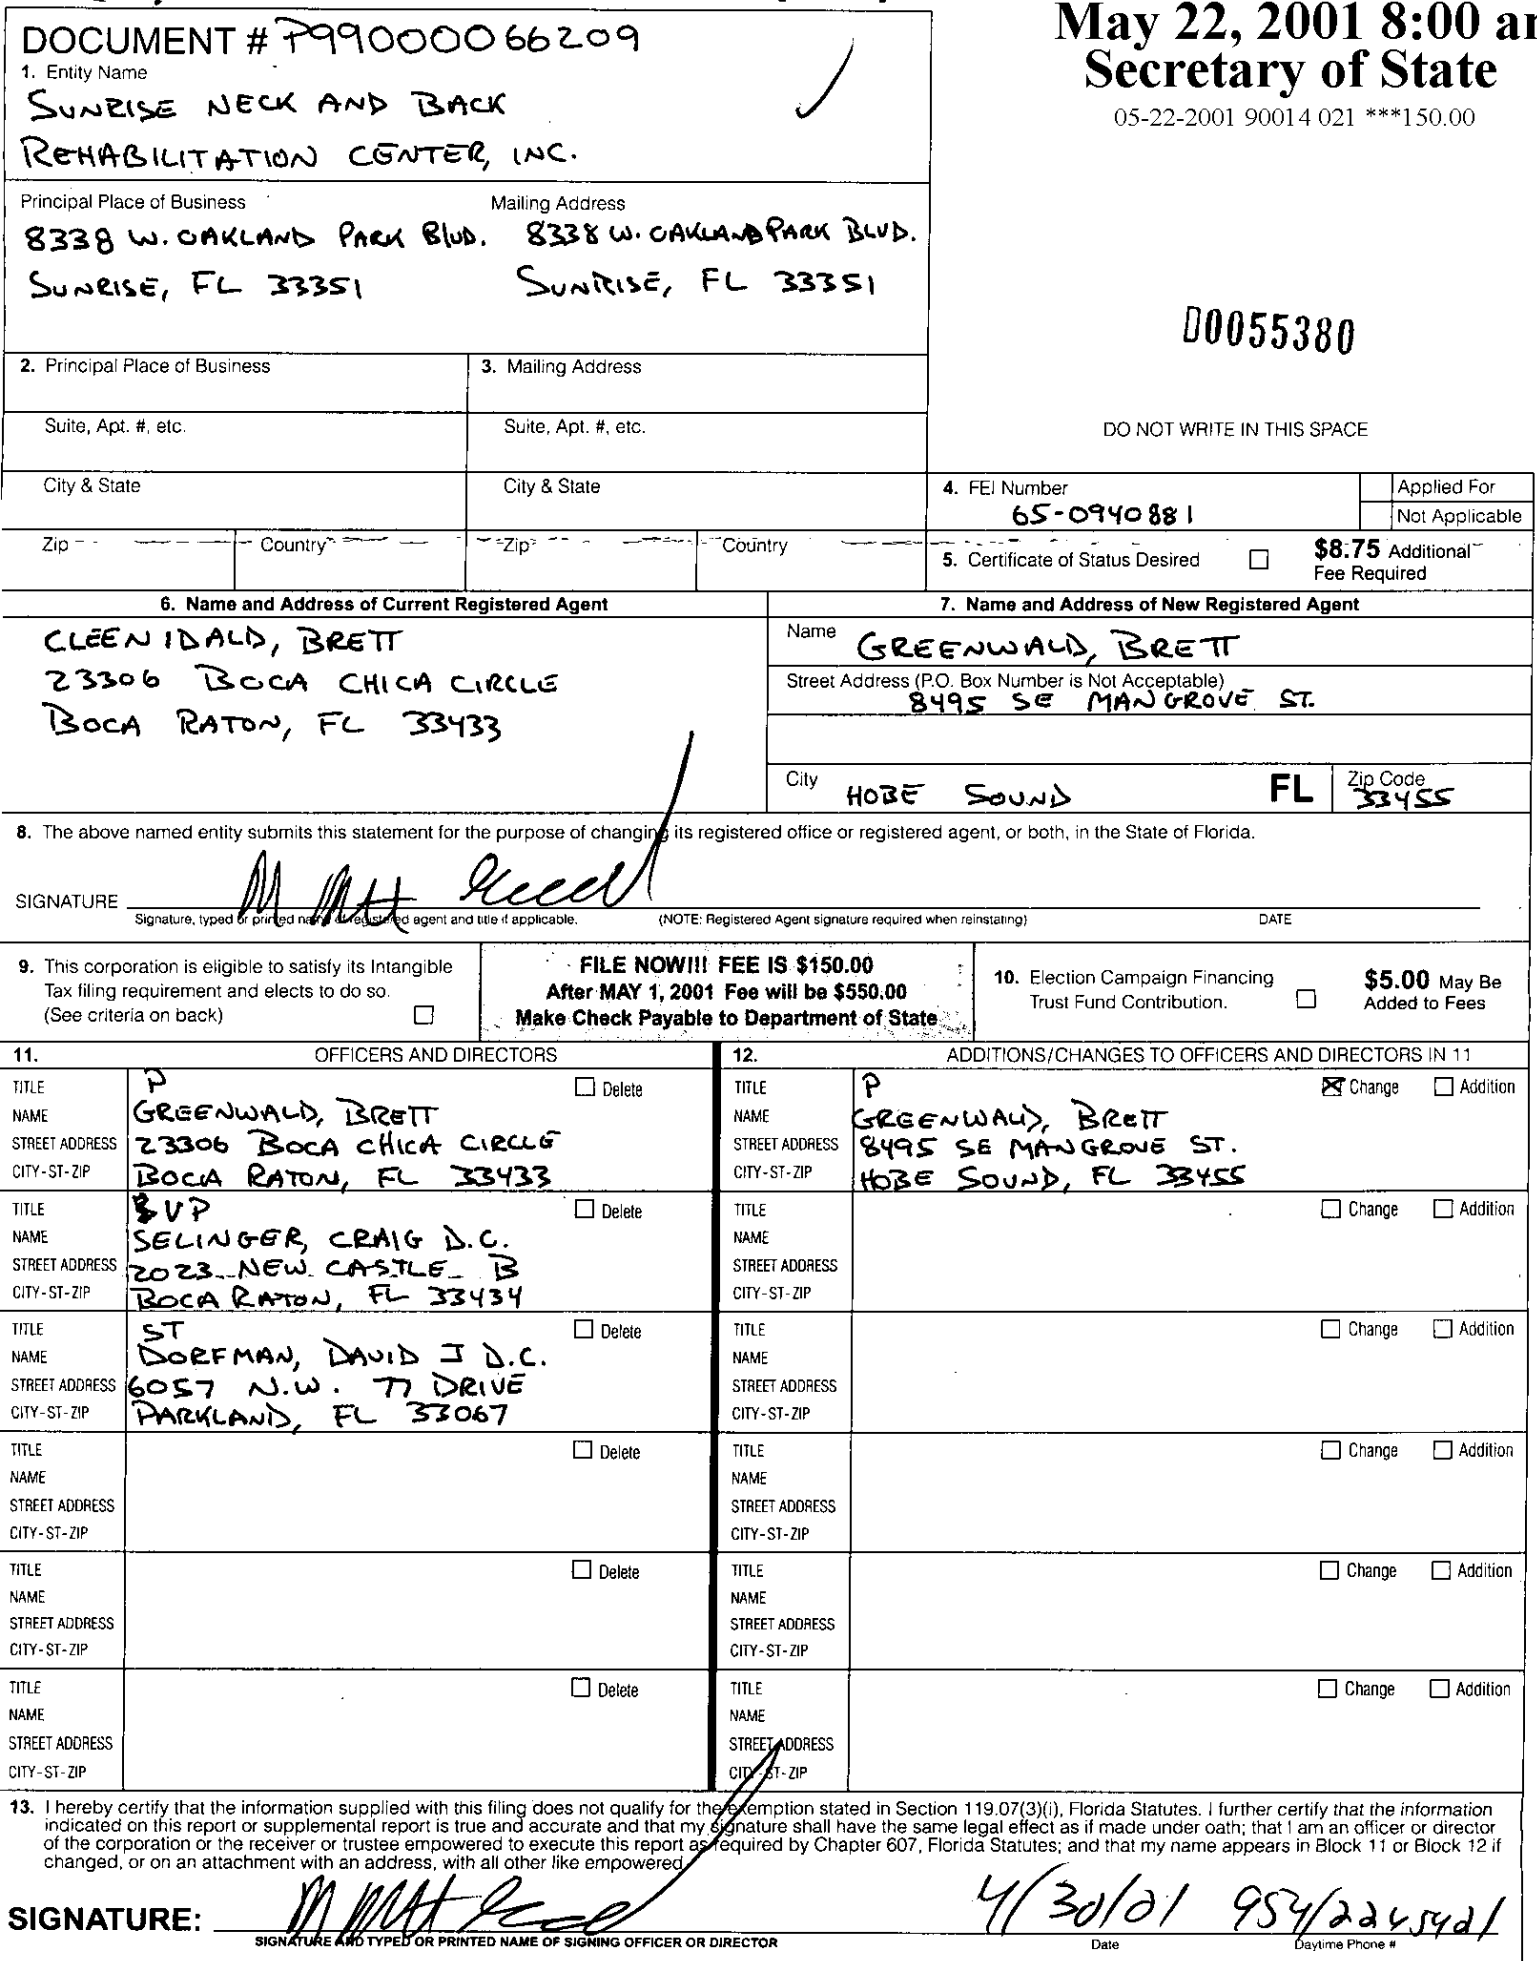 DOCUMENT # P99000066209
May 22, 2001 8:00 am
Secretary of State
05-22-2001 90014 021 ***150.00
1. Entity Name
SUNRISE NECK AND BACK
REHABILITATION CENTER, INC.
Principal Place of Business Mailing Address
8338 W. OAKLAND PARK BLVD. 8338 W. OAKLAND PARK BLVD.
SUNRISE, FL 33351 SUNRISE, FL 33351
D0055380
2. Principal Place of Business 3. Mailing Address
Suite, Apt. #, etc. Suite, Apt. #, etc.
DO NOT WRITE IN THIS SPACE
City & State City & State
4. FEI Number Applied For
65-0940881 Not Applicable
Zip Country Zip Country
5. Certificate of Status Desired $8.75 Additional
Fee Required
6. Name and Address of Current Registered Agent
CLEENIDALD, BRETT
23306 BOCA CHICA CIRCLE
BOCA RATON, FL 33433
7. Name and Address of New Registered Agent
Name GREENWALD, BRETT
Street Address (P.O. Box Number is Not Acceptable)
8495 SE MANGROVE ST.
City HOBE SOUND FL Zip Code 33455
8. The above named entity submits this statement for the purpose of changing its registered office or registered agent, or both, in the State of Florida.
SIGNATURE
Signature, typed or printed name of registered agent and title if applicable. (NOTE: Registered Agent signature required when reinstating) DATE
9. This corporation is eligible to satisfy its Intangible
Tax filing requirement and elects to do so.
(See criteria on back)
FILE NOW!!! FEE IS $150.00
After MAY 1, 2001 Fee will be $550.00
Make Check Payable to Department of State
10. Election Campaign Financing
Trust Fund Contribution.
$5.00 May Be
Added to Fees
11. OFFICERS AND DIRECTORS
TITLE P Delete
NAME GREENWALD, BRETT
STREET ADDRESS 23306 BOCA CHICA CIRCLE
CITY-ST-ZIP BOCA RATON, FL 33433
TITLE VP Delete
NAME SELINGER, CRAIG D.C.
STREET ADDRESS 2023 NEW CASTLE B
CITY-ST-ZIP BOCA RATON, FL 33434
TITLE ST Delete
NAME DORFMAN, DAVID J D.C.
STREET ADDRESS 6057 N.W. 77 DRIVE
CITY-ST-ZIP PARKLAND, FL 33067
TITLE Delete
NAME
STREET ADDRESS
CITY-ST-ZIP
TITLE Delete
NAME
STREET ADDRESS
CITY-ST-ZIP
TITLE Delete
NAME
STREET ADDRESS
CITY-ST-ZIP
12. ADDITIONS/CHANGES TO OFFICERS AND DIRECTORS IN 11
TITLE P Change Addition
NAME GREENWALD, BRETT
STREET ADDRESS 8495 SE MANGROVE ST.
CITY-ST-ZIP HOBE SOUND, FL 33455
TITLE Change Addition
NAME
STREET ADDRESS
CITY-ST-ZIP
TITLE Change Addition
NAME
STREET ADDRESS
CITY-ST-ZIP
TITLE Change Addition
NAME
STREET ADDRESS
CITY-ST-ZIP
TITLE Change Addition
NAME
STREET ADDRESS
CITY-ST-ZIP
TITLE Change Addition
NAME
STREET ADDRESS
CITY-ST-ZIP
13. I hereby certify that the information supplied with this filing does not qualify for the exemption stated in Section 119.07(3)(i), Florida Statutes. I further certify that the information
indicated on this report or supplemental report is true and accurate and that my signature shall have the same legal effect as if made under oath; that I am an officer or director
of the corporation or the receiver or trustee empowered to execute this report as required by Chapter 607, Florida Statutes; and that my name appears in Block 11 or Block 12 if
changed, or on an attachment with an address, with all other like empowered.
SIGNATURE: 4/30/01 954/2245421
SIGNATURE AND TYPED OR PRINTED NAME OF SIGNING OFFICER OR DIRECTOR Date Daytime Phone #